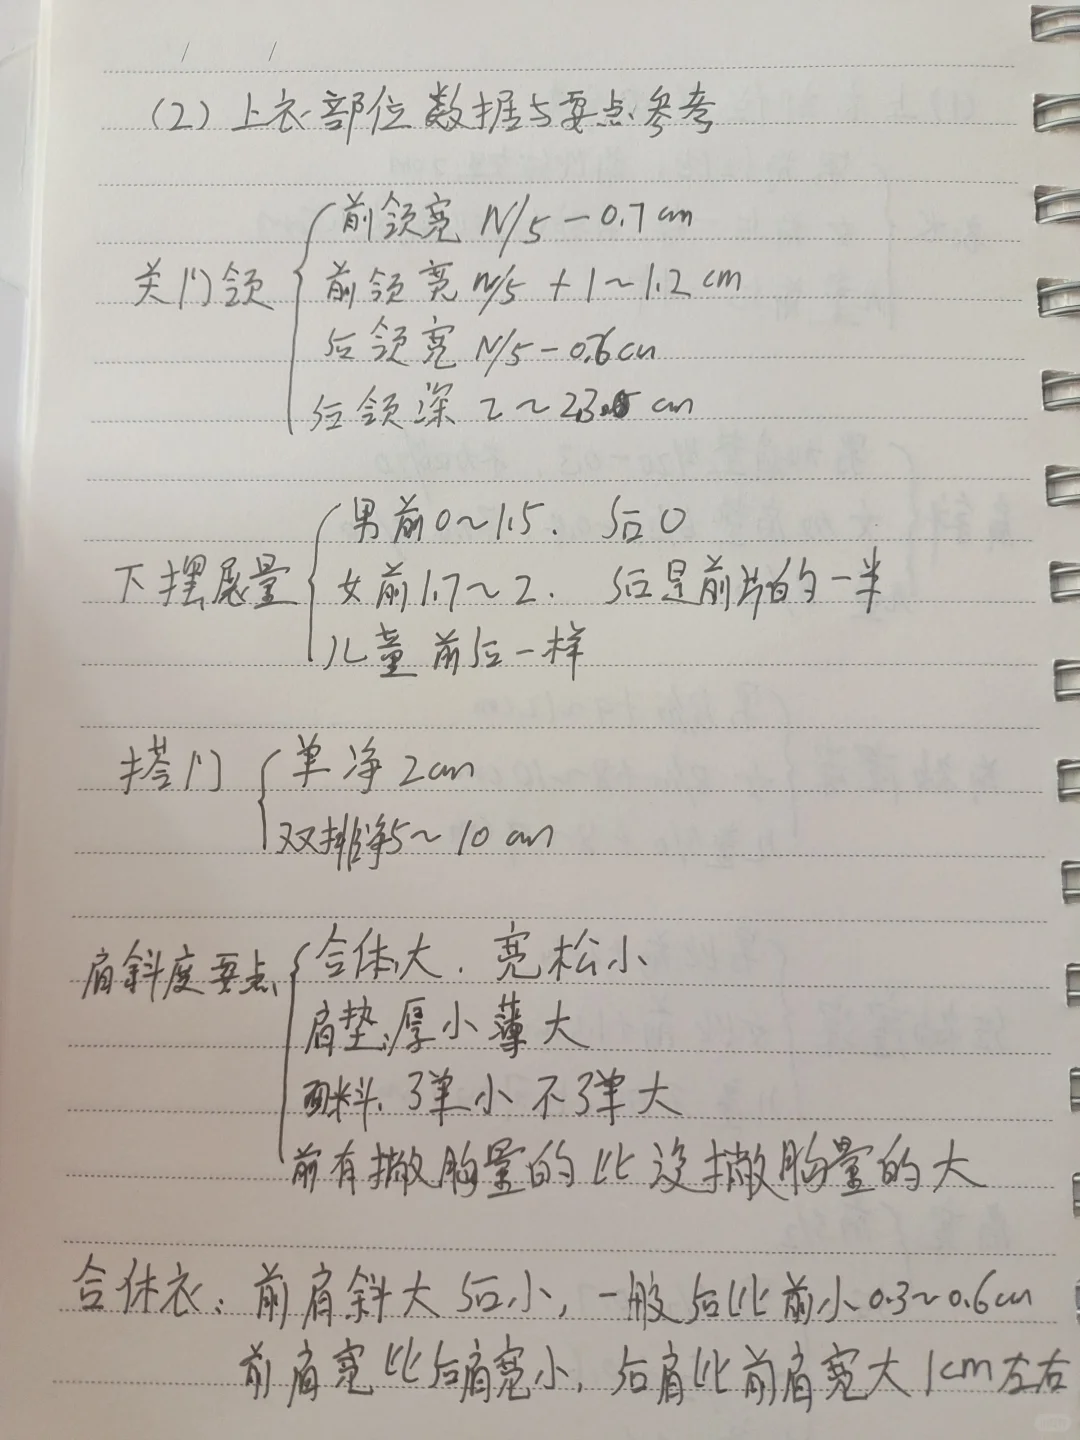 (2)上衣部位数据与要点参考
前领宽 N/5-0.7cm
关门领 前领宽 N/5+1~1.2cm
后领宽 N/5-0.6cm
后领深 2~2.3 cm
男前0~1.5. 后0
下摆展量 女前1.7~2. 后是前片的一半
儿童前后一样
搭门 单净2cm
双排净5~10cm
肩斜度要点 合体大.宽松小
肩垫,厚小薄大
面料,弹小不弹大
前有撇胸量的比没撇胸量的大
合体衣:前肩斜大后小,一般后比前小0.3~0.6cm
前肩宽比后肩宽小,后肩比前肩宽大1cm左右